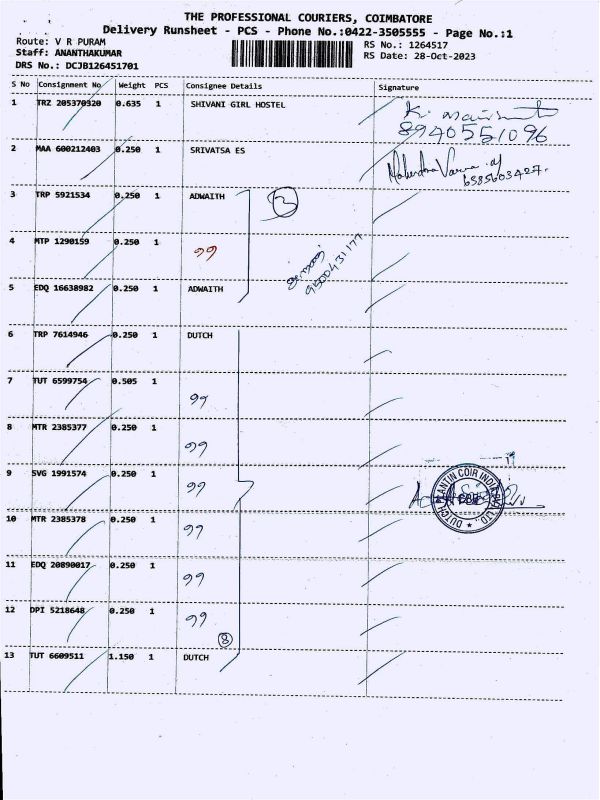 THE PROFESSIONAL COURIERS, COIMBATORE
Delivery Runsheet - PCS - Phone No.:0422-3505555 - Page No.:1
Route: V R PURAM
RS No.: 1264517
Staff: ANANTHAKUMAR
RS Date: 28-Oct-2023
DRS No.: DCJB126451701
S No Consignment No Weight PCS Consignee Details Signature
1 TRZ 205370320 0.635 1 SHIVANI GIRL HOSTEL
8940551096
2 MAA 600212403 0.250 1 SRIVATSA ES
3 TRP 5921534 0.250 1 ADWAITH 3
4 MTP 1290159 0.250 1 99
9500431177
5 EDQ 16638982 0.250 1 ADWAITH
6 TRP 7614946 0.250 1 DUTCH
7 TUT 6599754 0.505 1 99
8 MTR 2385377 0.250 1 99
9 SVG 1991574 0.250 1 99
DUTCH PLANTIN COIR INDIA PVT. LTD.,
CBE
10 MTR 2385378 0.250 1 99
11 EDQ 20890017 0.250 1 99
12 DPI 5218648 0.250 1 99
8
13 TUT 6609511 1.150 1 DUTCH